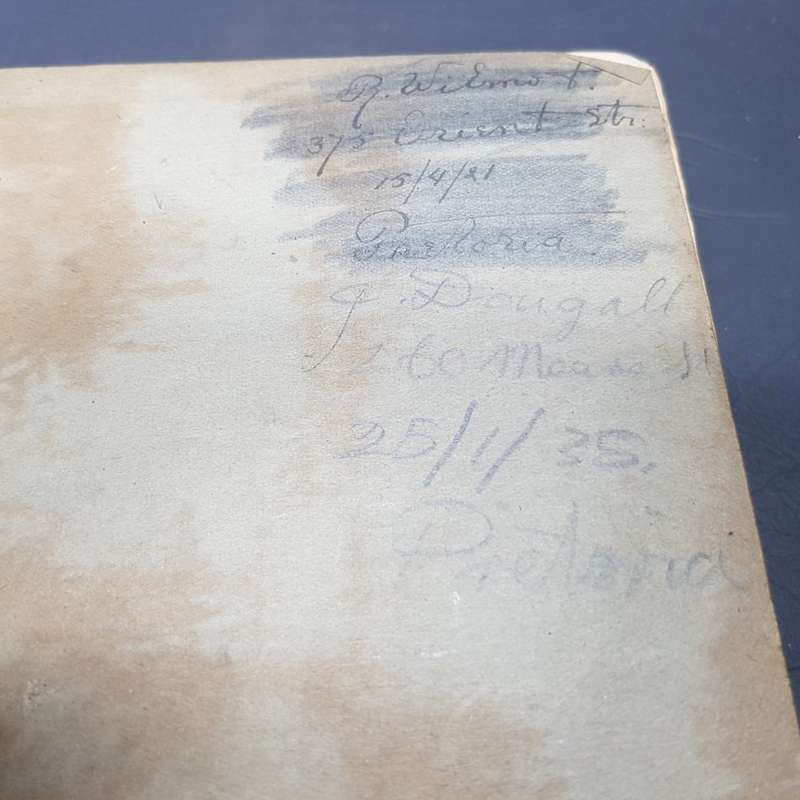 R. Wilmot.
375 Orient Str:
15/4/21
Pretoria.
J. Dougall
260
25/1/35.
Pretoria